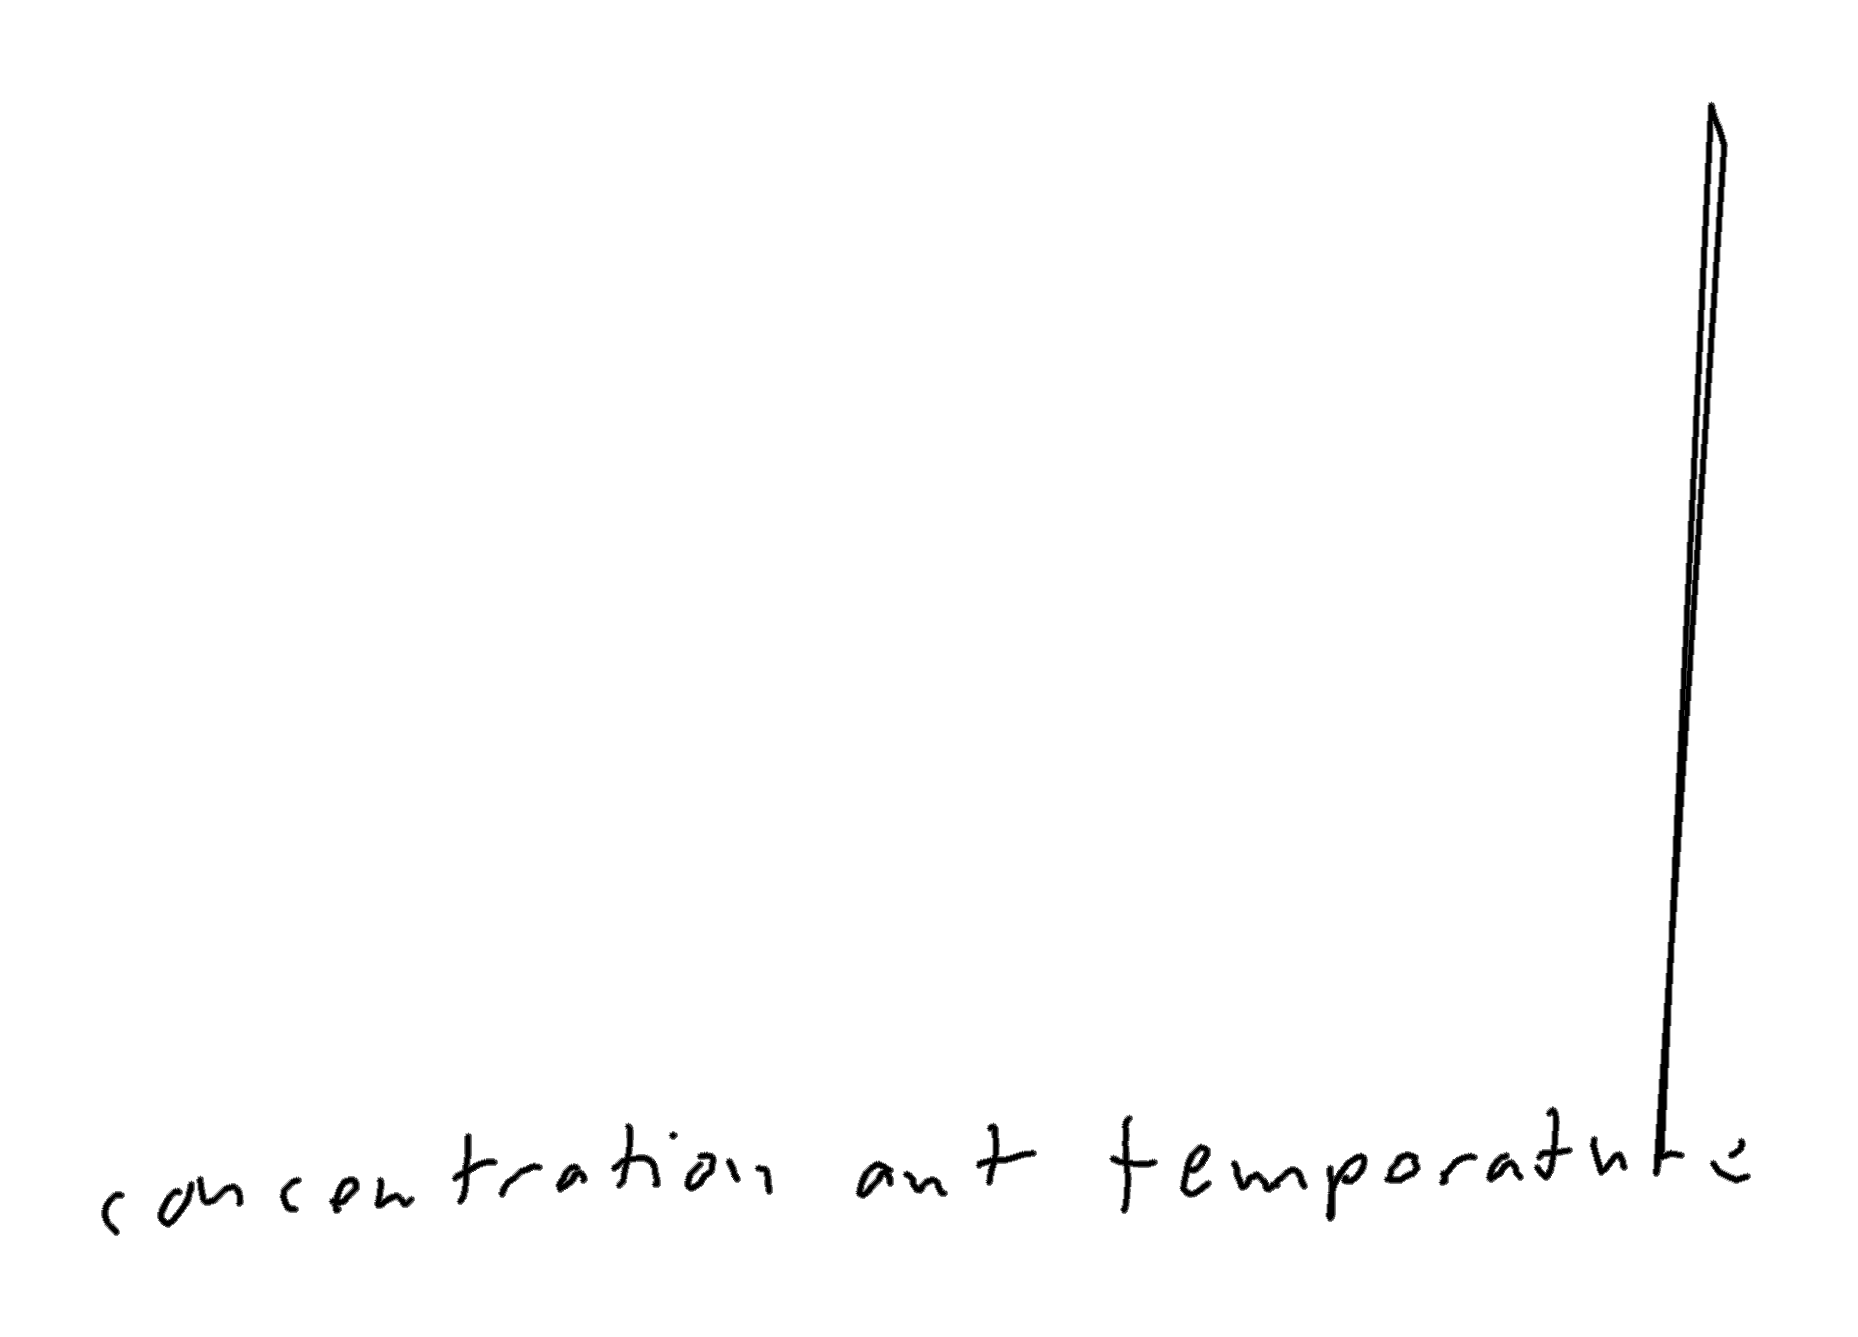 concentration ant temporature